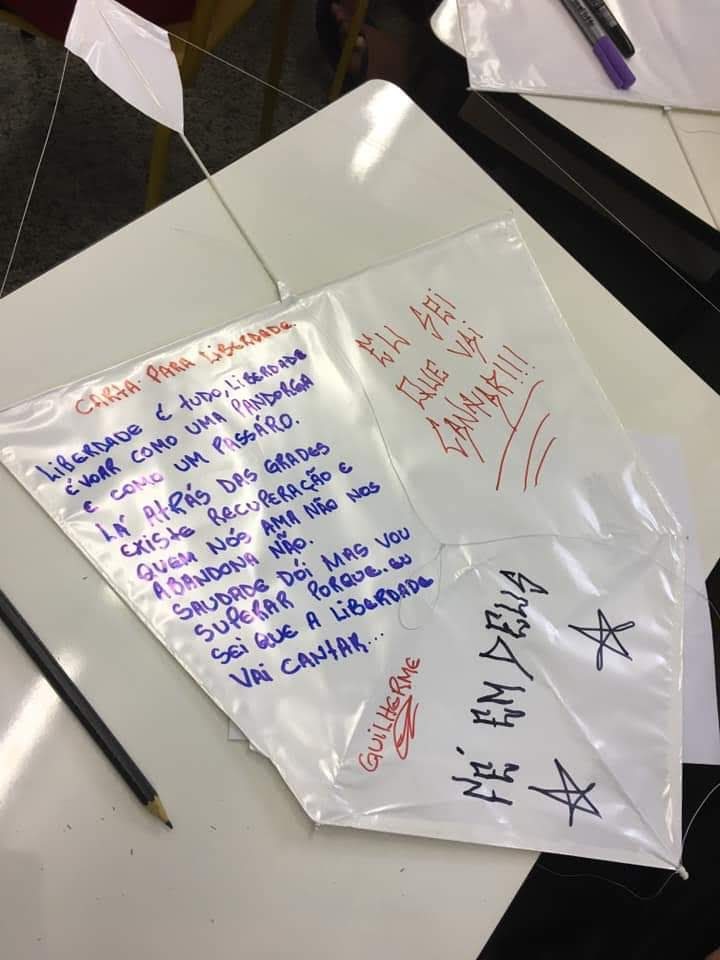 CARTA PARA LIBERDADE.
LIBERDADE É TUDO, LIBERDADE
É VOAR COMO UMA PANDORGA
E COMO UM PASSÁRO.
LÁ ATRÁS DAS GRADES
EXISTE RECUPERAÇÃO E
QUEM NÓS AMA NÃO NOS
ABANDONA NÃO.
SAUDADE DÓI MAS VOU
SUPERAR PORQUE. EU
SEI QUE A LIBERDADE
VAI CANTAR...
GUILHERME
EU SEI
QUE VAI
CANTAR!!!
FÉ EM DEUS